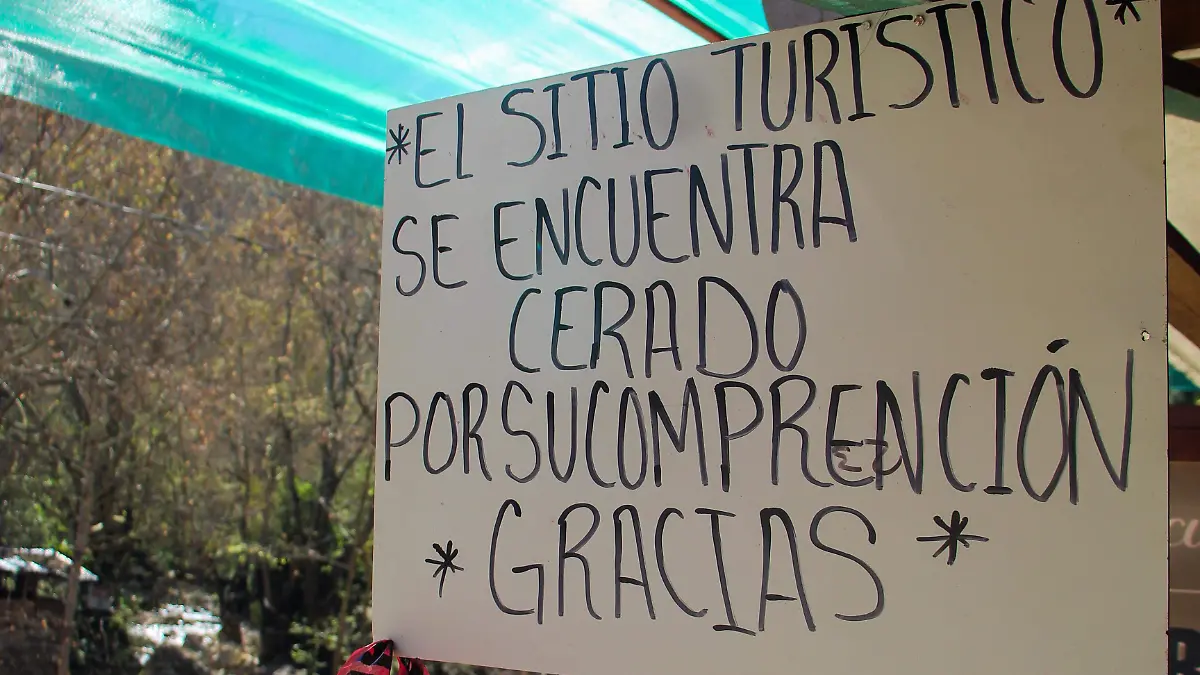 *EL SITIO TURISTICO*
SE ENCUENTRA
CERADO
PORSUCOMPRENCIÓN
*GRACIAS*